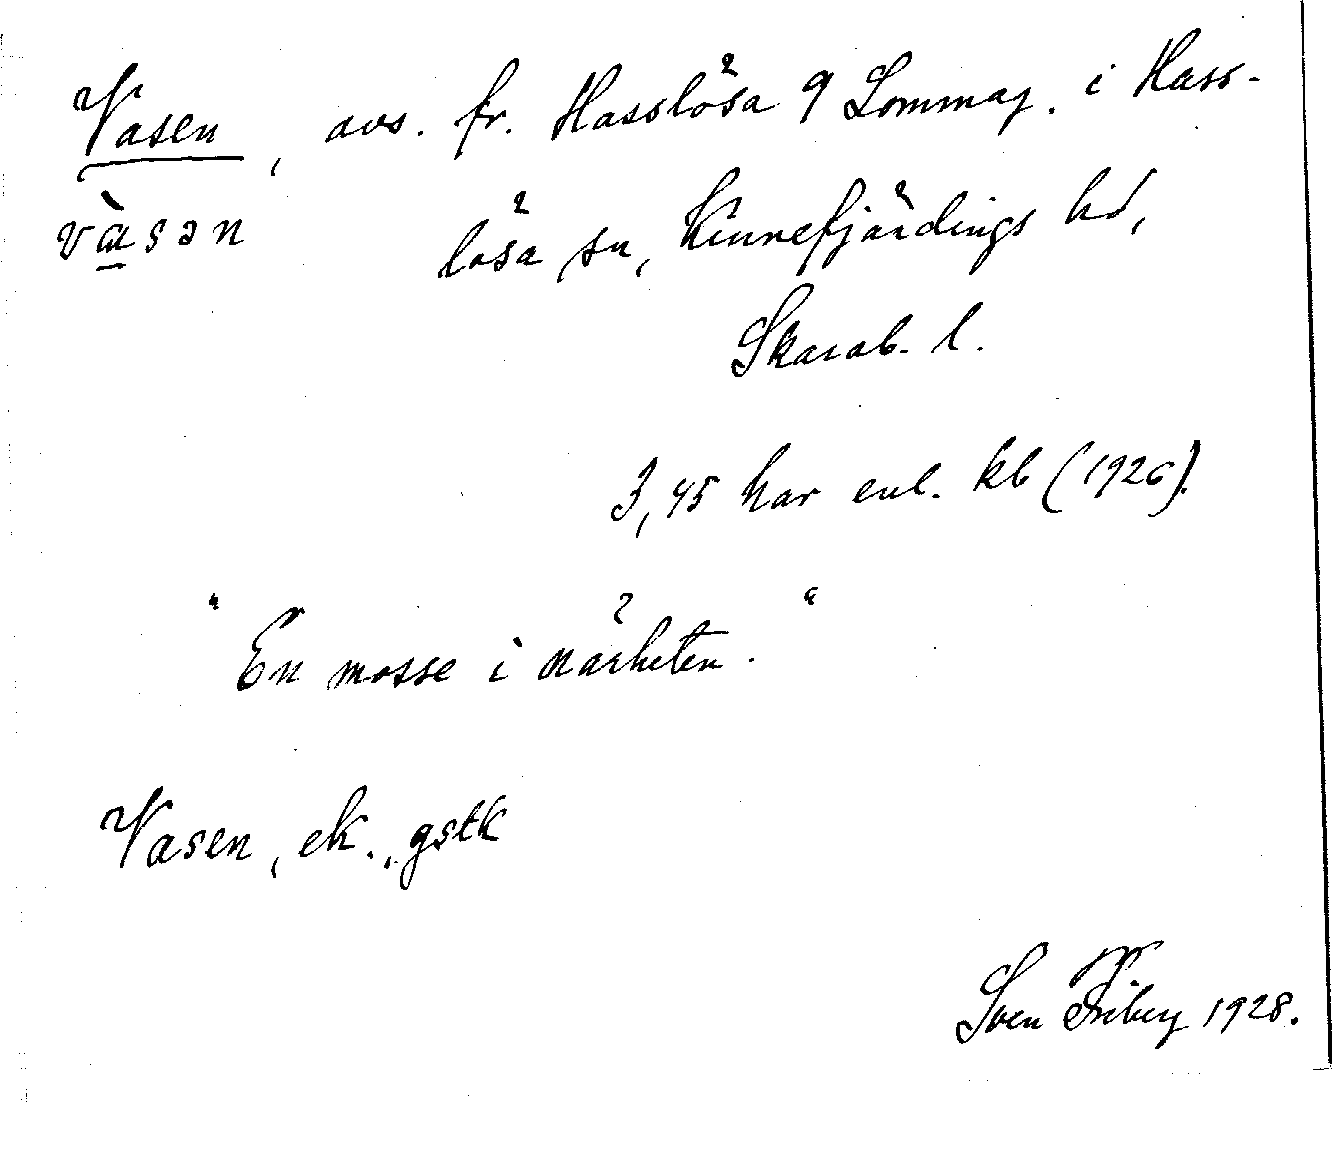 Vasen, avs. fr. Hasslösa 9 Lommag. i Hass-
vàsən lösa sn, Kinnefjärdings hd,
Skarab. l.
3,45 har enl. kb (1926).
"En mosse i närheten."
Vasen, ek., gstk
Sven Friberg 1928.